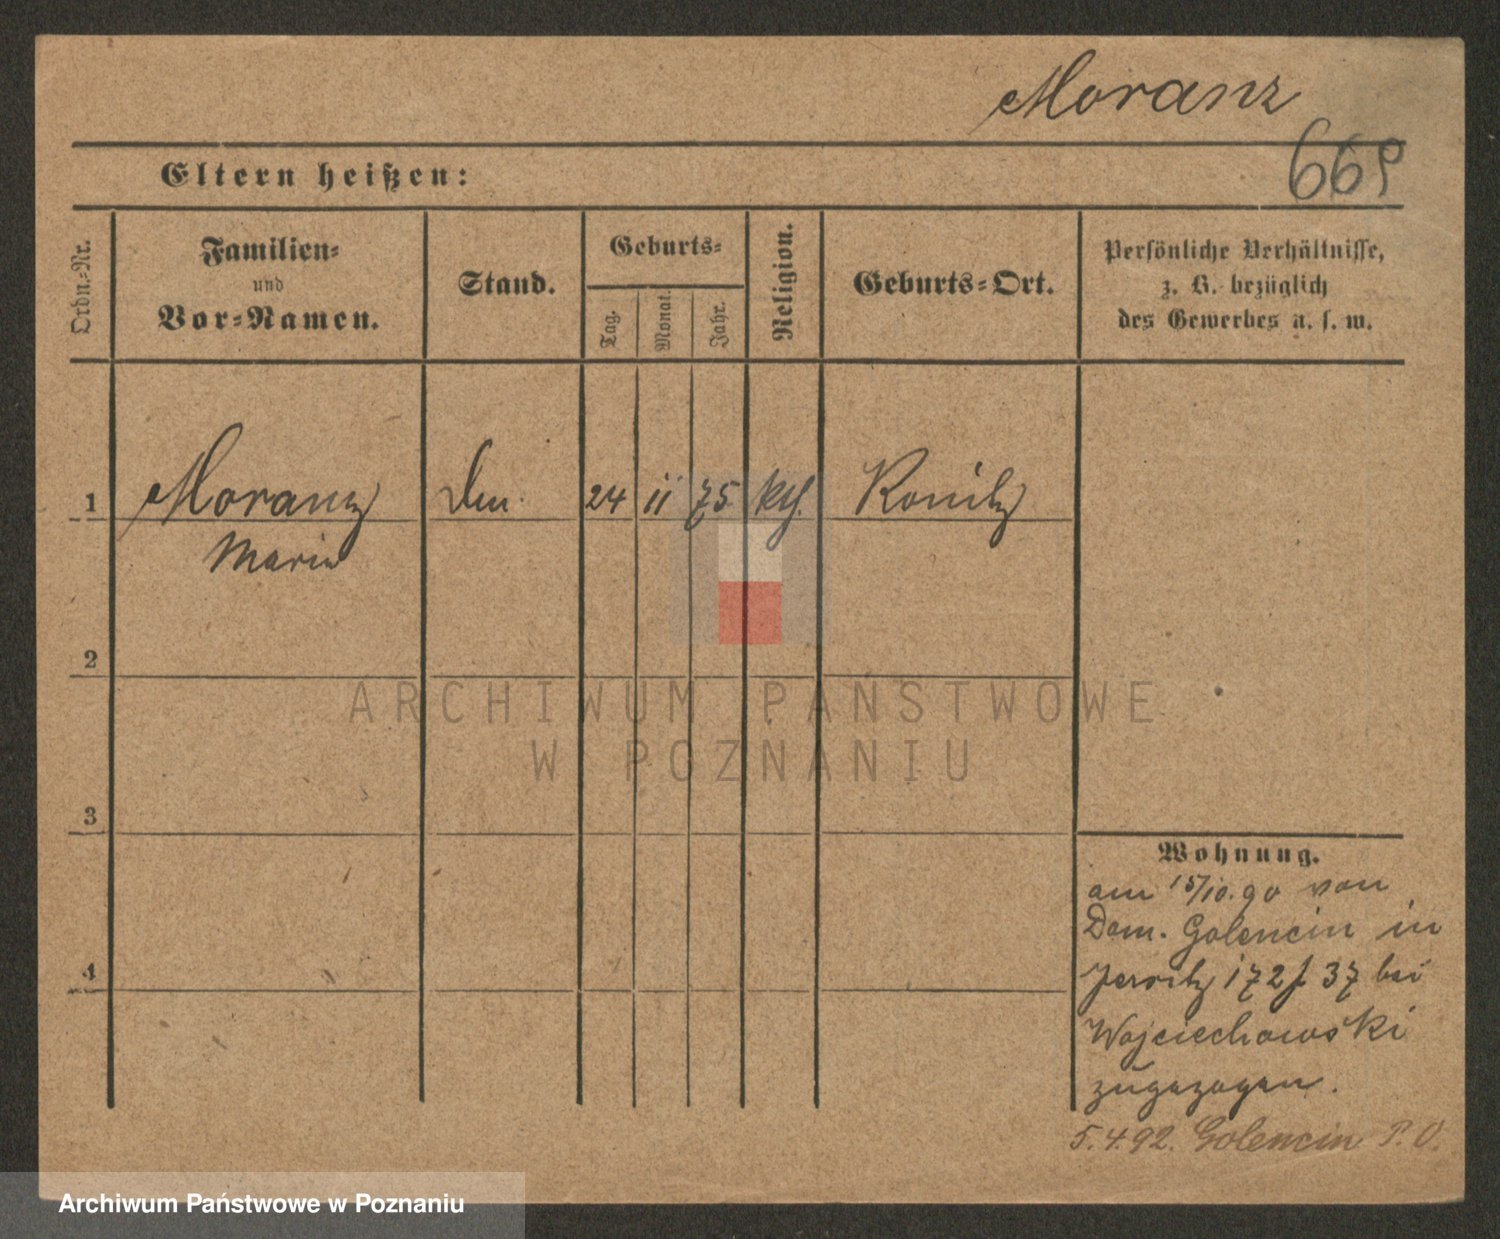 Moranz
669
Eltern heißen:
Ordn.-Nr.
Familien-
und
Vor-Namen.
Stand.
Geburts-
Tag.
Monat.
Jahr.
Religion.
Geburts-Ort.
Persönliche Verhältnisse,
z. B. bezüglich
des Gewerbes u. s. w.
1 Moranz 24 11 75 kth. Konitz
Maria
2
3
4
Wohnung.
am 15/10. 90 von
Dom. Golencin in
Jersitz 172 f 37 bei
Wojciechowski
zugezogen.
5.4.92. Golencin P. O.
ARCHIWUM PAŃSTWOWE
W POZNANIU
Archiwum Państwowe w Poznaniu